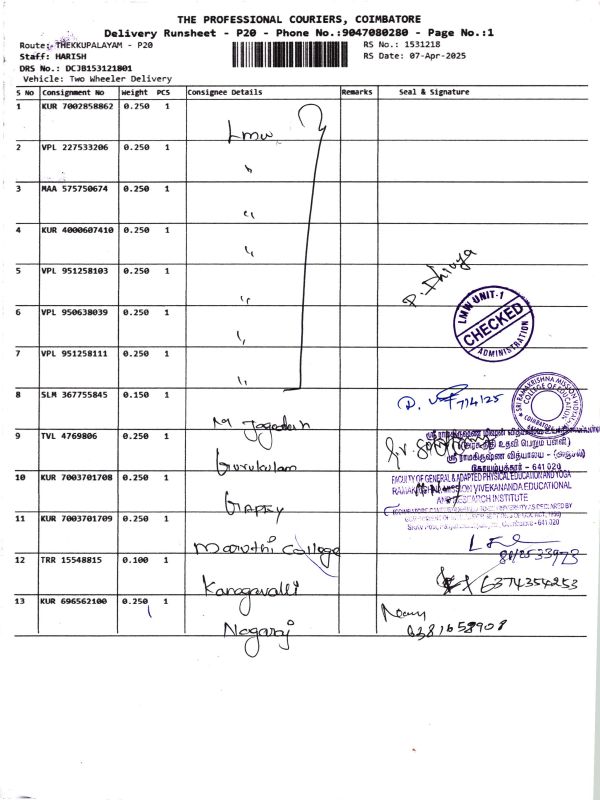 THE PROFESSIONAL COURIERS, COIMBATORE
Delivery Runsheet - P20 - Phone No.:9047080280 - Page No.:1
Route: THEKKUPALAYAM - P20
RS No.: 1531218
Staff: HARISH
RS Date: 07-Apr-2025
DRS No.: DCJB153121801
Vehicle: Two Wheeler Delivery
S No Consignment No Weight PCS Consignee Details Remarks Seal & Signature
1 KUR 7002858862 0.250 1 Lmw
2 VPL 227533206 0.250 1 "
3 MAA 575750674 0.250 1 "
4 KUR 4000607410 0.250 1 "
5 VPL 951258103 0.250 1 "
P. Dhivya
6 VPL 950638039 0.250 1 "
LMW UNIT-1
CHECKED
ADMINISTRATION
7 VPL 951258111 0.250 1 "
8 SLM 367755845 0.150 1
SRI RAMAKRISHNA MISSION
COLLEGE OF EDUCATION
9 TVL 4769806 0.250 1 Gurukulam
ஸ்ரீ ராமகிருஷ்ண மிஷன்
உதவி பெறும்
ஸ்ரீ ராமகிருஷ்ண வித்யாலயா
கோயம்புத்தூர் - 641 020
10 KUR 7003701708 0.250 1
FACULTY OF GENERAL & ADAPTED PHYSICAL EDUCATION AND YOGA
RAMAKRISHNA MISSION VIVEKANANDA EDUCATIONAL
AND RESEARCH INSTITUTE
11 KUR 7003701709 0.250 1 Maruthi College
12 TRR 15548815 0.100 1 Kanagavalli
6374354253
13 KUR 696562100 0.250 1 Nagaraj